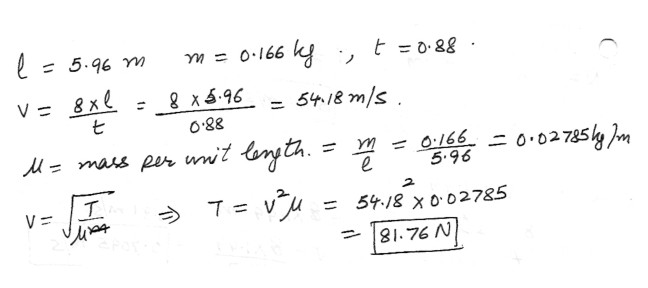 l = 5.96 m m = 0.166 kg ., t = 0.88 .
v = 8xl/t = 8 x 5.96/0.88 = 54.18 m/s .
μ = mass per unit length. = m/l = 0.166/5.96 = 0.02785 kg/m
v = √T/μ ⇒ T = v²μ = 54.18² x 0.02785
= 81.76 N